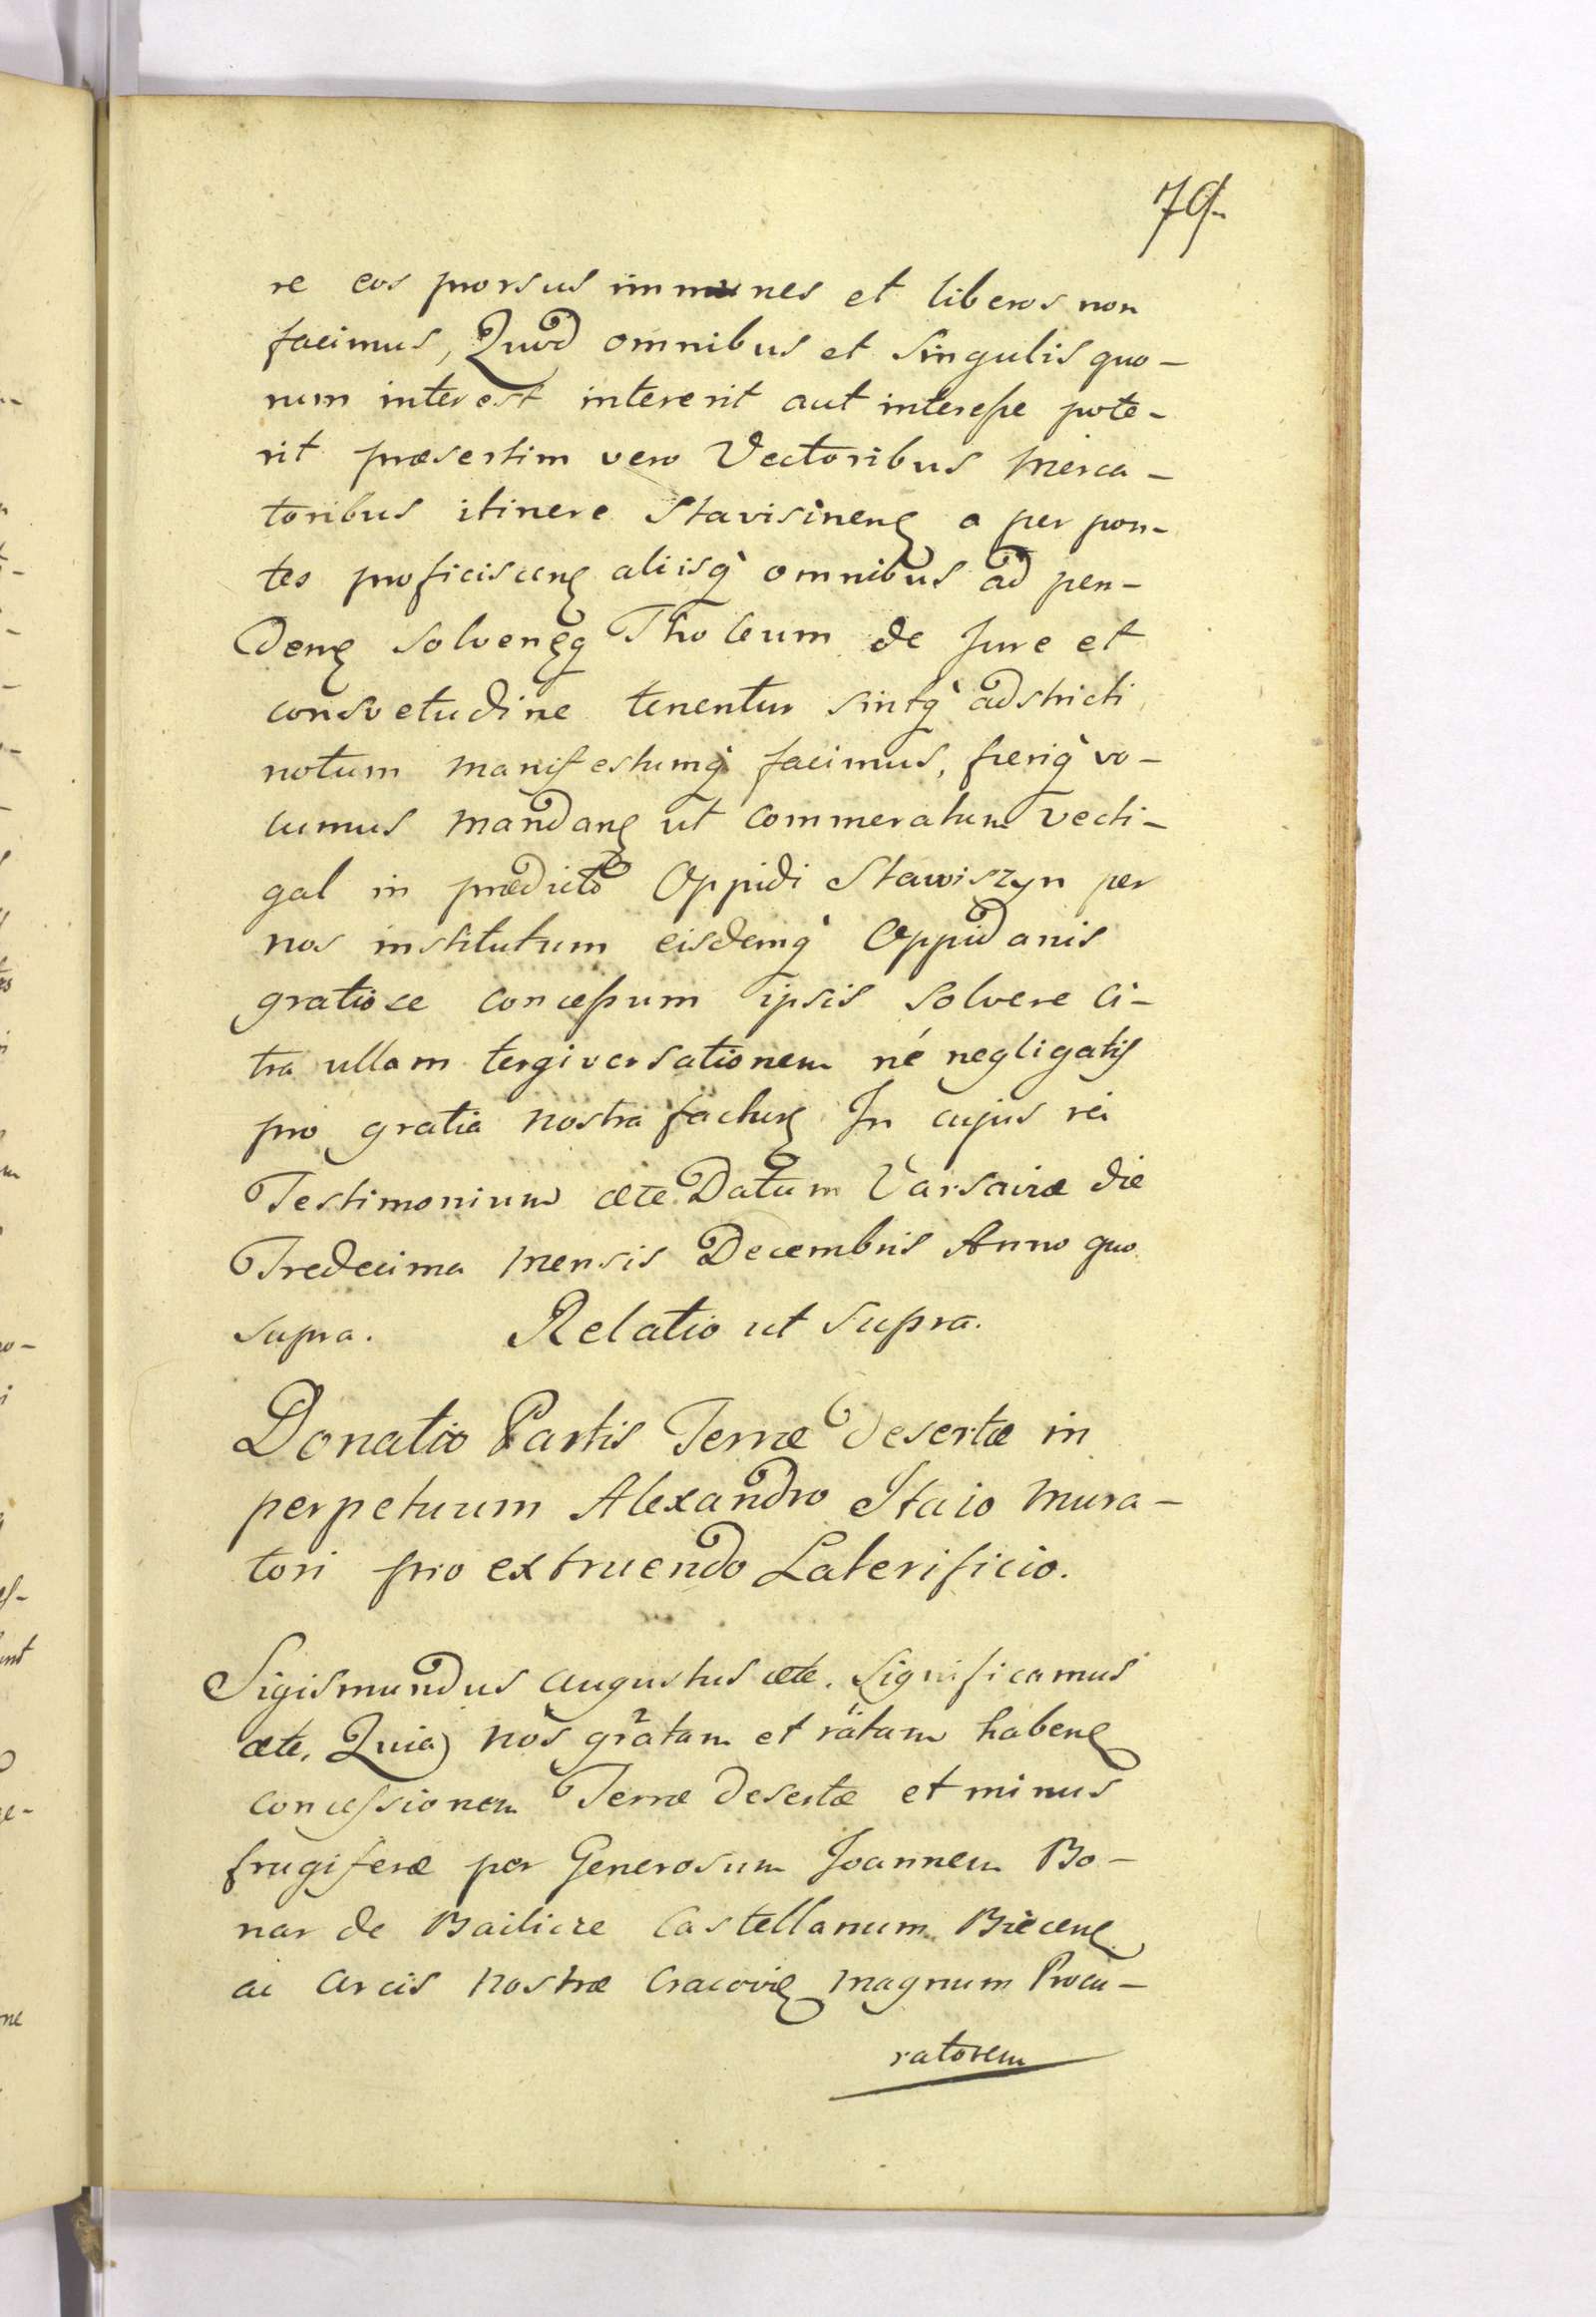 79.
re eos prorsus immunes et liberos non
facimus, Quod omnibus et singulis quo-
rum interest intererit aut interesse pote-
rit præsertim vero Vectoribus Merca-
toribus itinere Stavisineñ a per pon-
tes proficisceñ aliisq̀ omnibus ad pen-
Deñ solveñq Tholeum de Jure et
consvetudine tenentur sintq̀ adstricti
notum manifestumq̀ facimus, freriq̀ vo-
lumus mandañ ut commeratum vecti-
gal in prædicto Oppidi Stawiszyn per
nos institutum eisdemq̀ Oppidanis
gratiose concessum ipsis solvere ci-
tra ullam tergiversationem né negligatis
pro gratia nostra factuȩ In cujus rei
Testimonium ætc Datum Varsaviæ die
Tredecima Mensis Decembris Anno quo
supra. Relatio ut supra.
Donatio Partis Terræ desertæ in
perpetuum Alexandro Staio Mura-
tori pro extruendo Laterificio.
Sigismundus Augustus ætc. Significamus
ætc, Quia nos gratam et rätam habeñ
concessionem Terræ Desertæ et minus
frugiferæ per Generosum Joannem Bo-
nar de Bailicze Castellanum Bieceñ
ac Arcis Nostræ Cracovieñ magnum Procu-
ratorem